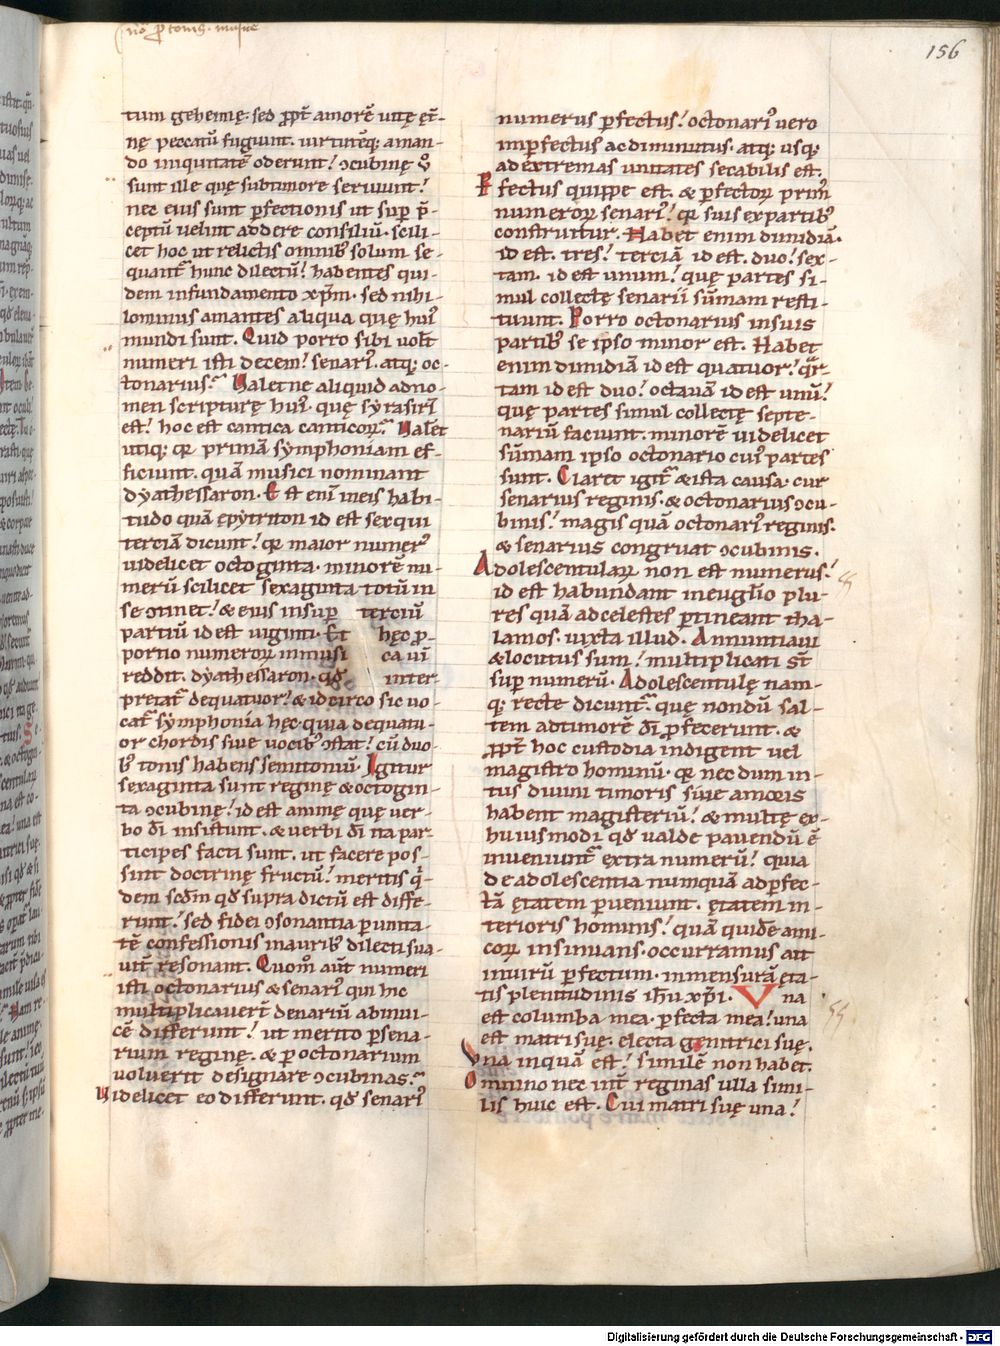 156
tum gehennę. sed ꝓpt̄ amorē uitę ęt̄-
nę peccatū fugiunt. uirtutēq; aman-
do iniquitatē oderunt! ↄcubinę ů
sunt illę quę sub timore seruiunt!
nec eius sunt ꝑfectionis ut suꝑ p̄-
ceptū uelint addere consiliū. scili-
cet hoc ut relictis omnibꝰ solum se-
quant᷑ hunc dilectū! habentes qui-
dem in fundamento xp̄m. sed nihi-
lominus amantes aliqua quę huiꝰ
mundi sunt. Quid porro sibi uolt̄
numeri isti decem! senariꝰ. atq; oc-
tonarius? Ualet ne aliquid ad no-
men scripturę huiꝰ. quę syrasirī
est! hoc est cantica canticoꝝ? Ualet
utiq; qꝛ primā symphoniam ef-
ficiunt. quā musici nominant
dyathessaron. Est enī in eis habi-
tudo quā epytriton id est sexqui
terciā dicunt! qꝛ maior numerꝰ
uidelicet octoginta. minorē nu-
merū scilicet sexaginta totū in
se ↄtinet! & eius insuꝑ terciū
partiū id est uiginti. Et hęc ꝓ-
portio numeroꝝ in musica uim
reddit. dyathessaron. qd̄ inter
pretat᷑ de quatuor! & idcirco sic uo-
cat᷑ symphonia hęc. quia de quatu-
or chordis siue uocibꝰ ↄstat! cū duo-
bꝰ tonis habens semitoniū. Igitur
sexaginta sunt reginę & octogin-
ta ↄcubinę! id est animę quę uer-
bo dī insistunt. & uerbi dī ita par-
ticipes facti sunt. ut facere pos-
sint doctrinę fructū! meritis q̇-
dem scd̄m qd̄ supra dictū est diffe-
runt! sed fidei ↄsonantia ꝑ unita-
tē confessionis in auribꝰ dilecti sua-
uit̄ resonant. Quom̄ aut̄ numeri
isti octonarius & senariꝰ qui hic
multiplicauer̄t denariū ab inui-
cē differunt! ut merito ꝑ sena-
rium reginę. & ꝑ octonarium
uoluerit designare ↄcubinas?
Uidelicet eo differunt. qd̄ senariꝰ
numerus ꝑfectus! octonariꝰ uero
imꝑfectus ac diminutus. atq; usq;
ad extremas unitates secabilis est.
Pfectus quippe est. & ꝑfectoꝝ primꝰ
numeroꝝ senariꝰ! qꝛ suis ex partibꝰ
construitur. Habet enim dimidiā.
id est. tres! terciā id est. duo! sex-
tam. id est unum! quę partes si-
mul collectę senarii sūmam resti-
tuunt. Porro octonarius in suis
partibꝰ se ip̄so minor est. Habet
enim dimidiā id est quatuor! qᷓr-
tam id est duo! octauā id est unū!
quę partes simul collectę septe-
nariū faciunt. minorē uidelicet
sūmam ipso octonario cuiꝰ partes
sunt. Claret igit᷑ & ista causa. cur
senarius reginis. & octonarius ↄcu-
binis! magis quā octonariꝰ reginis.
& senarius congruat ↄcubinis.
Adolescentulaꝝ non est numerus!
id est habundant in euḡlio plu-
res quā ad celestes ꝑtineant tha-
lamos. iuxta illud. Annuntiaui
& locutus sum! multiplicati st̄
suꝑ numerū. Adolescentulę nam-
q; recte dicunt᷑. quę nondū sal-
tem ad timorē dī ꝓfecerunt. &
ꝓpt̄ hoc custodia indigent uel
magistro hominū. qꝛ nec dum in-
tus diuini timoris siue amoris
habent magisteriū! & multę ex
huiusmodi qd̄ ualde pauendū ē
inueniunt᷑ extra numerū! quia
de adolescentia numquā ad ꝑfec-
tā ętatem ꝑueniunt. ętatem in-
terioris hominis! quā quidē ami-
coꝝ insinuans. occurramus ait
in uirū ꝑfectum. in mensurā ęta-
tis plenitudinis ih̄u xp̄i. Una
est columba mea. ꝑfecta mea! una
est matri suę. electa genitrici suę.
Una inquā est! similē non habet.
Omnino nec int̄ reginas ulla simi-
lis huic est. Cui matri suę una!
Digitalisierung gefördert durch die Deutsche Forschungsgemeinschaft - DFG